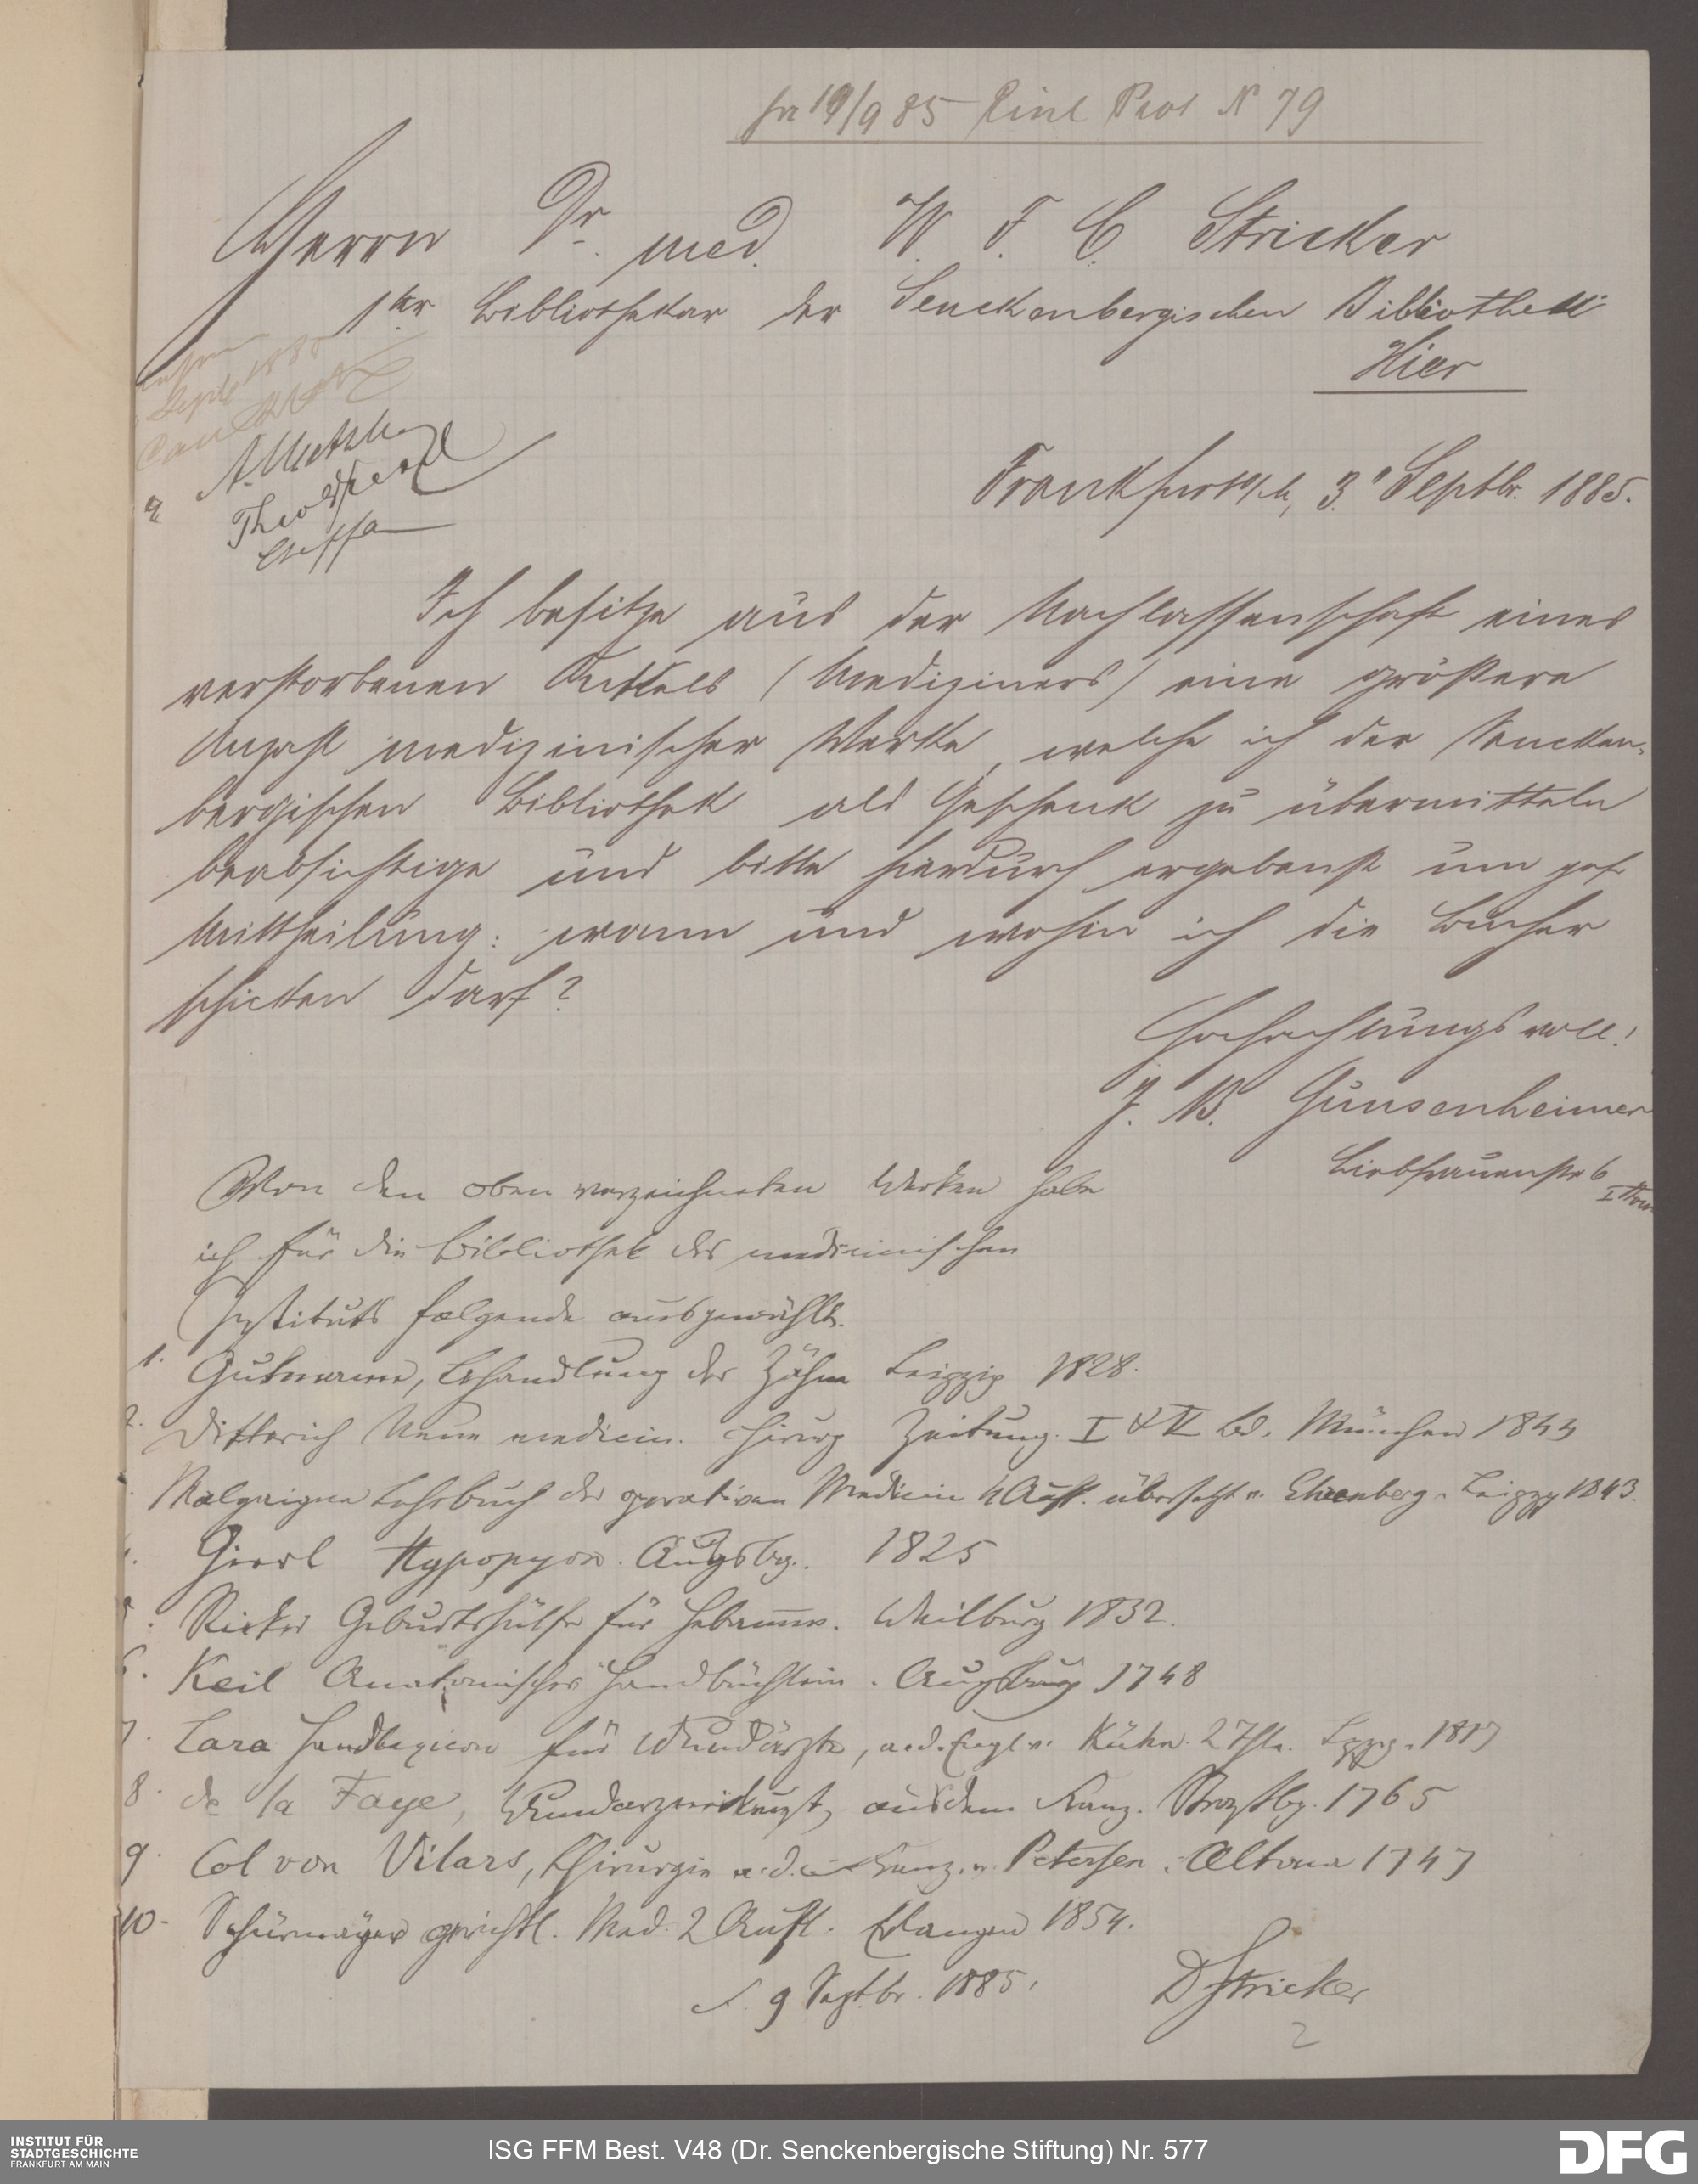 19/9 85 Einl Prot N 79
Herrn Dr. med. W. F. C. Stricker
1ter Bibliothekar der Senckenbergischen Bibliothek
Hier
Septb 1885
Frankfurt a/M, 3. Septbr. 1885.
Ich besitze aus der Nachlassenschaft eines
verstorbenen Onkels (Mediziners) eine größere
Anzahl medizinischer Werke, welche ich der Sencken-
bergischen Bibliothek als Geschenk zu übermitteln
beabsichtige und bitte hierdurch ergebenst um gef
Mittheilung: wann und wohin ich die Bücher
schicken darf?
Hochachtungsvoll!
J. B. Gunsenheimer
Liebfrauenstr 6
Von den oben verzeichneten Werken habe
ich für die Bibliothek des medicinischen
Instituts folgende ausgewählt.
1. Gutmann, Behandlung der Zähne Leipzig 1828.
2. Dittterich Neue medicin. chirurg Zeitung. I & II Bd. München 1844
Malgaigne Lehrbuch der operativen Medicin 4 Aufl. übersetzt v. Ehrenberg. Leipzig 1843.
Gierl Hypopyon. Augsbg. 1825
Ricker Geburtshülfe für Hebammen. Weilburg 1832.
6. Keil Anatomisches Handbüchlein. Augsburg 1748
7. Lara Handlexicon für Wundärzte, a. d. Engl v. Kühn. 2 Thle. Lpzg. 1817
8. de la Faye, Wundarzneikunst, aus dem Franz. Strasbg. 1765
9. Col von Vilars, Chirurgie a. d. Franz. v. Petersen. Altona 1747
10. Schürmayer gerichtl. Med. 2 Aufl. Erlangen 1854.
9 Septbr. 1885.
D Stricker
2
INSTITUT FÜR
STADTGESCHICHTE
FRANKFURT AM MAIN
ISG FFM Best. V48 (Dr. Senckenbergische Stiftung) Nr. 577
DFG